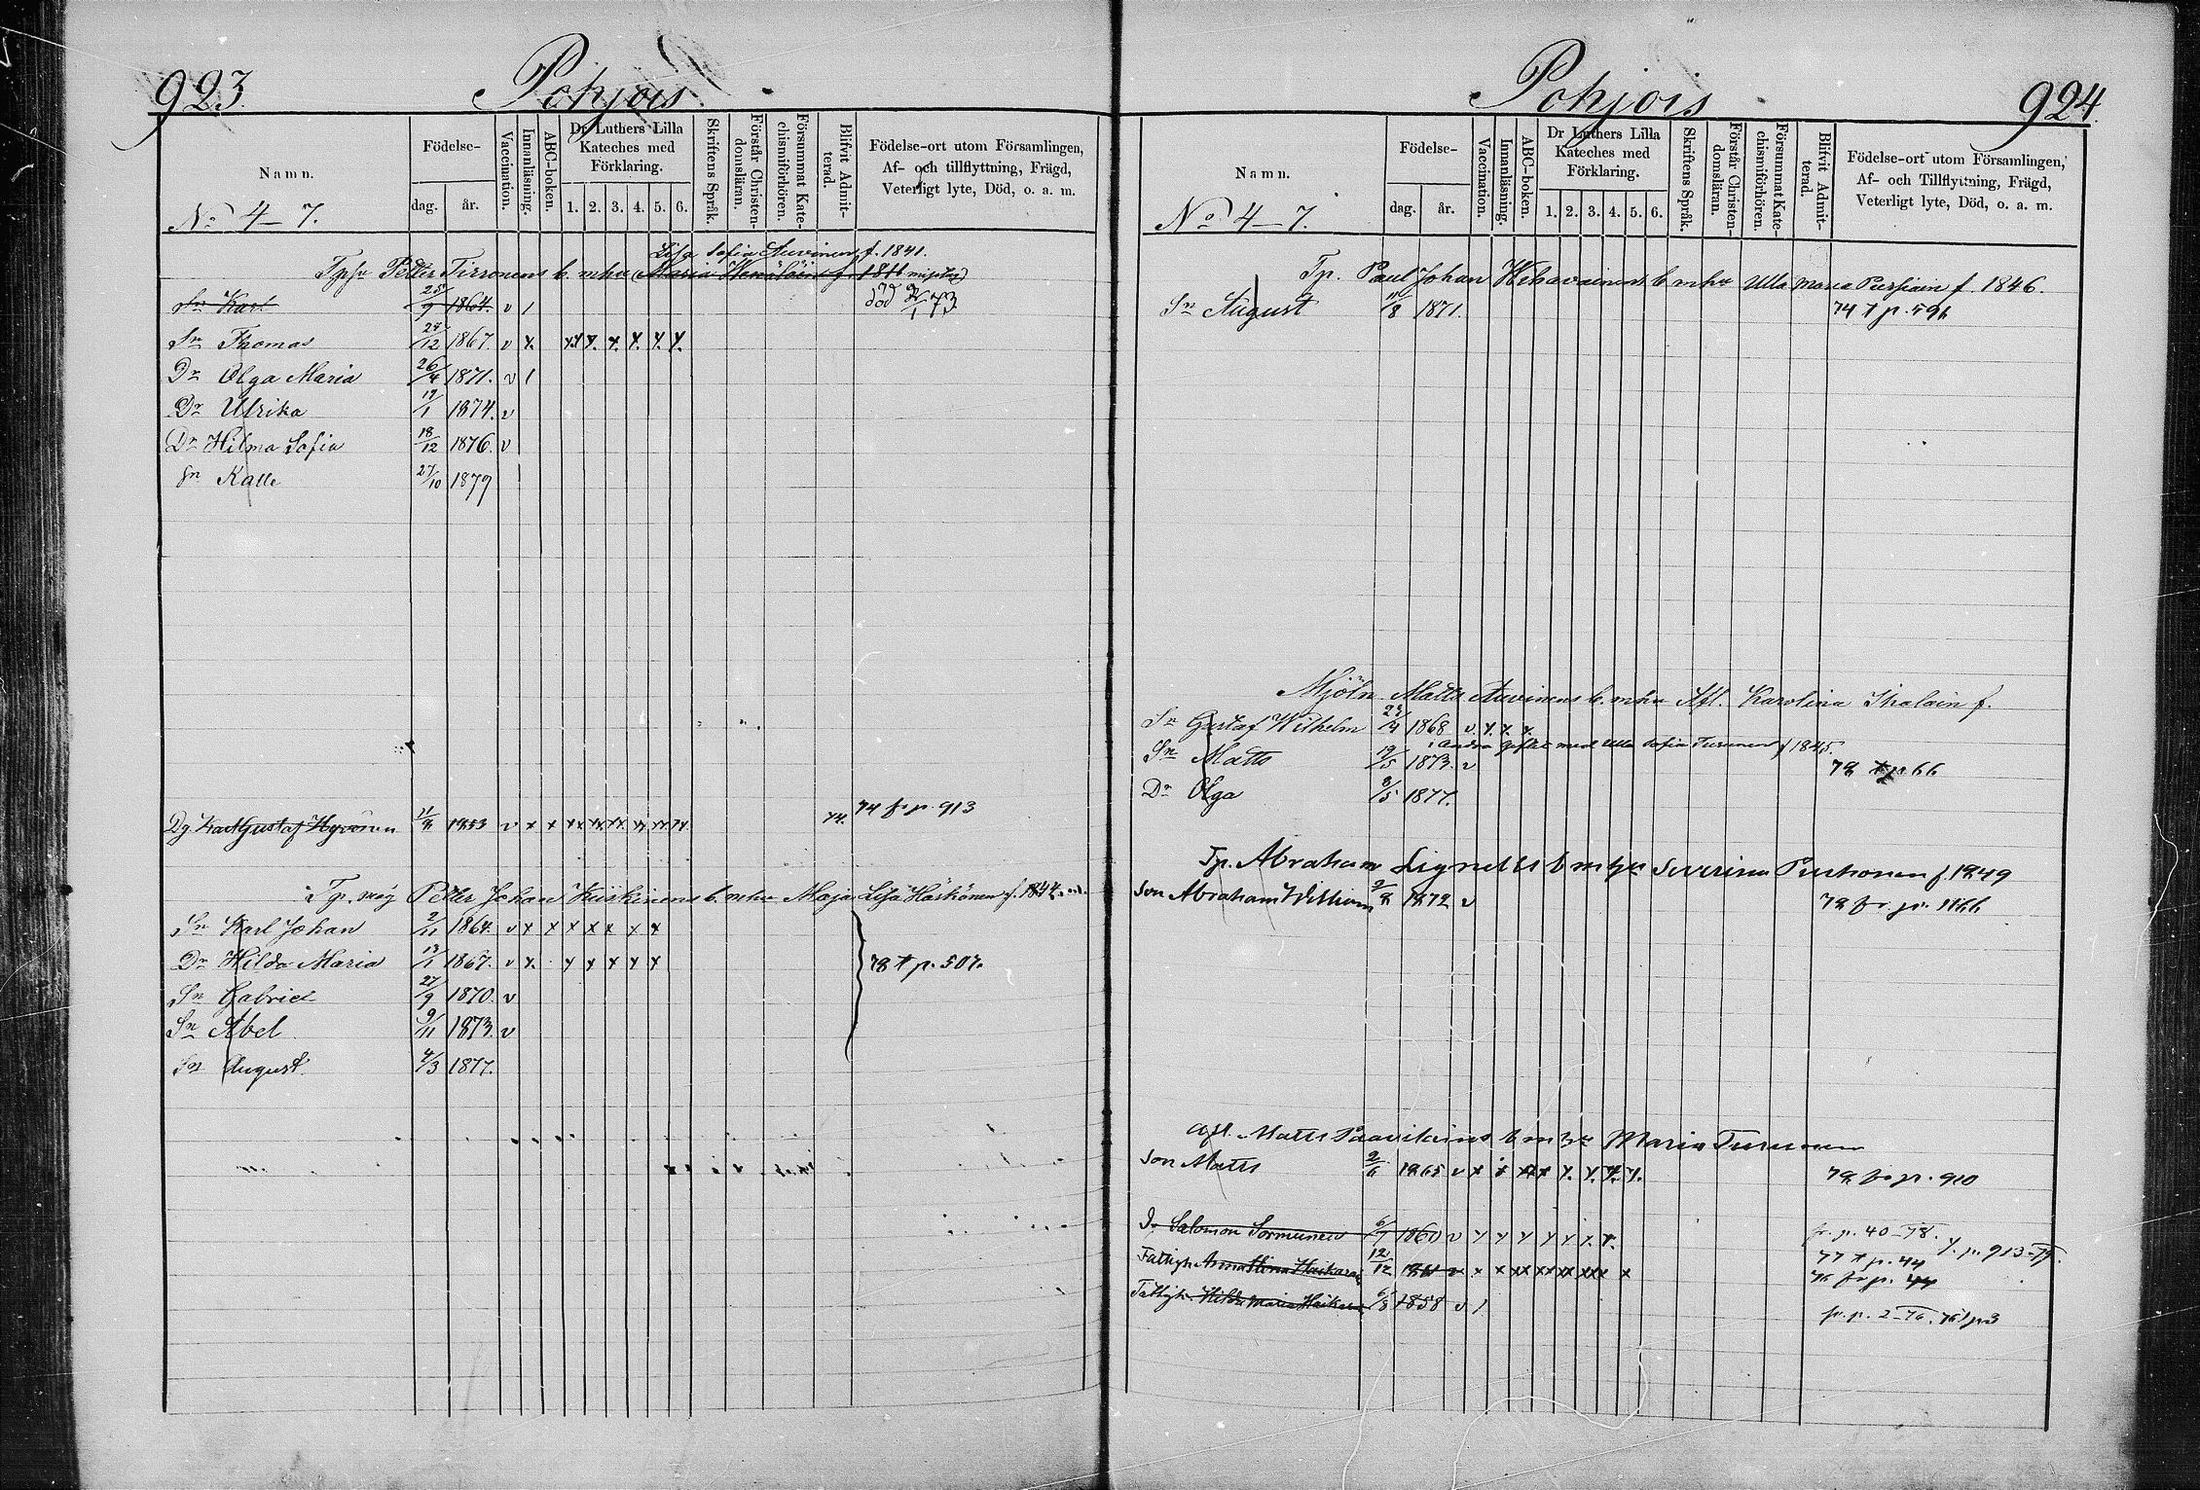 923.
Pohjois
Namn.
Födelse-
dag.
år.
Vaccination.
Innanläsning.
ABC-boken.
Dr Luthers Lilla Kateches med Förklaring.
1. 2. 3. 4. 5. 6.
Skriftens Språk.
Förstår Christendomsläran.
Försummat Katechismiförhören.
Blifvit Admitterad.
Födelse-ort utom Församlingen,
Af- och tillflyttning, Frägd,
Veterligt lyte, Död, o. a. m.
No 4-7.
Lisa Sofia Auvinen f. 1841.
Petter Tirronens b. m hu Maria
Sn Karl 25/9 1864. v 1 död 73
Sn Thomas 12 1867. v x.
Dr Olga Maria 26/4 1871. v 1
Dr Ulrika 1 1874. v
Dr Hilma Sofia 18/12 1876. v
Sn Kalle 27/10 1879
Dg. Karl Gustaf Hyvönen 1853 v x x 74. 74 fr p. 913
Tp. Petter Johan Kuiskinens b. m hu Maja Lisa Haskonen f. 1844.
Sn Karl Johan 2/11 1864. v x x x x x x x
Dr Hilda Maria 13/1 1867. v x. x x x x x 78 t p. 507.
Sn Gabriel 27/9 1870. v
Sn Abel 9/11 1873. v
Sn August. 4/3 1877.
924.
Pohjois
Namn.
Födelse-
dag.
år.
Vaccination.
Innanläsning.
ABC-boken.
Dr Luthers Lilla Kateches med Förklaring.
1. 2. 3. 4. 5. 6.
Skriftens Språk.
Förstår Christendomsläran.
Försummat Katechismiförhören.
Blifvit Admitterad.
Födelse-ort utom Församlingen,
Af- och Tillflyttning, Frägd,
Veterligt lyte, Död, o. a. m.
No 4-7.
Tp. Paul Johan b. m hu Ulla Maria f. 1846.
Sn August 11/8 1871. 74 t p. 596
Mjöln. Matts Auvinens b. m hu Afl. Karolina f.
Sn Gustaf Wilhelm 23/4 1868 v x. x. x.
i andra giftet med Ulla Sofia Turunen f 1845.
Sn Matts 19/5 1873. v 78 t p 66
Dr Olga 3/5 1877.
Tp. Abraham Lignells b m hu Severina f. 1849
Son Abraham William 1872 v 78 fr. p. 1166
Matts b m hu Maria Turunen
Son Matts 2/6 1865 v x 78 fr p. 910
Dr Salomon Sormunen 6/7 1860 v fr. p. 40-78. p. 913-79.
Fattigh. Anna Stina 12/12 77 t p. 44
76 fr p. 44
Fattigh. Hilda Maria 1858 v 1 fr. p. 2-76.